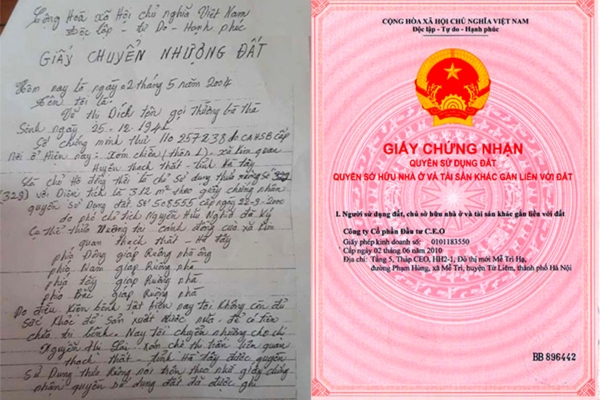 Cộng Hòa Xã Hội chủ nghĩa Việt Nam
Độc lập - Tự Do - Hạnh phúc
GIẤY CHUYỂN NHƯỢNG ĐẤT
Hôm nay là ngày 02 tháng 5 năm 2004
Tên tôi là
Vũ thị Dích tên gọi Thường bà thà
Sinh ngày 25.12.1942
Số chứng minh thư 110 257 838 do CA HSB cấp
Nơi ở Hiện nay: Xóm chiến (thôn 2), xã liên quan
Huyện thạch thất - tỉnh Hà tây
Là chủ Hộ đồng thời là chủ sử dụng thửa ruộng Số
(328) với Diện tích là 312 m² theo giấy chứng nhận
quyền sử dụng đất số 508555 cấp ngày 22-9-2000
do phó chủ tịch Nguyễn Hữu Nghĩa đã ký
Cụ thể thửa ruộng tại - cánh đồng của xã liên
quan thạch thất - Hà tây
phía Đông giáp Ruộng nhà ông
phía Nam giáp Ruộng nhà
phía tây giáp Ruộng nhà
phía Bắc giáp Ruộng nhà
Do điều kiện bệnh tật hiện nay tôi không còn đủ
sức khỏe để sản xuất được nữa. để có tiền
chữa trị bệnh. Nay tôi chuyển nhượng cho chị
Nguyễn thị xóm chợ thị trấn liên quan
thạch thất - tỉnh Hà tây được quyền
sử dụng thửa Ruộng nói trên theo như giấy chứng
nhận quyền sử dụng đất đã được ghi
CỘNG HÒA XÃ HỘI CHỦ NGHĨA VIỆT NAM
Độc lập - Tự do - Hạnh phúc
GIẤY CHỨNG NHẬN
QUYỀN SỬ DỤNG ĐẤT
QUYỀN SỞ HỮU NHÀ Ở VÀ TÀI SẢN KHÁC GẮN LIỀN VỚI ĐẤT
I. Người sử dụng đất, chủ sở hữu nhà ở và tài sản khác gắn liền với đất
Công ty Cổ phần Đầu tư C.E.O
Giấy phép kinh doanh số: 0101183550
Cấp ngày 02 tháng 06 năm 2010
Địa chỉ: Tầng 5, Tháp CEO, HH2-1, Đô thị mới Mễ Trì Hạ,
đường Phạm Hùng, xã Mễ Trì, huyện Từ Liêm, thành phố Hà Nội
BB 896442